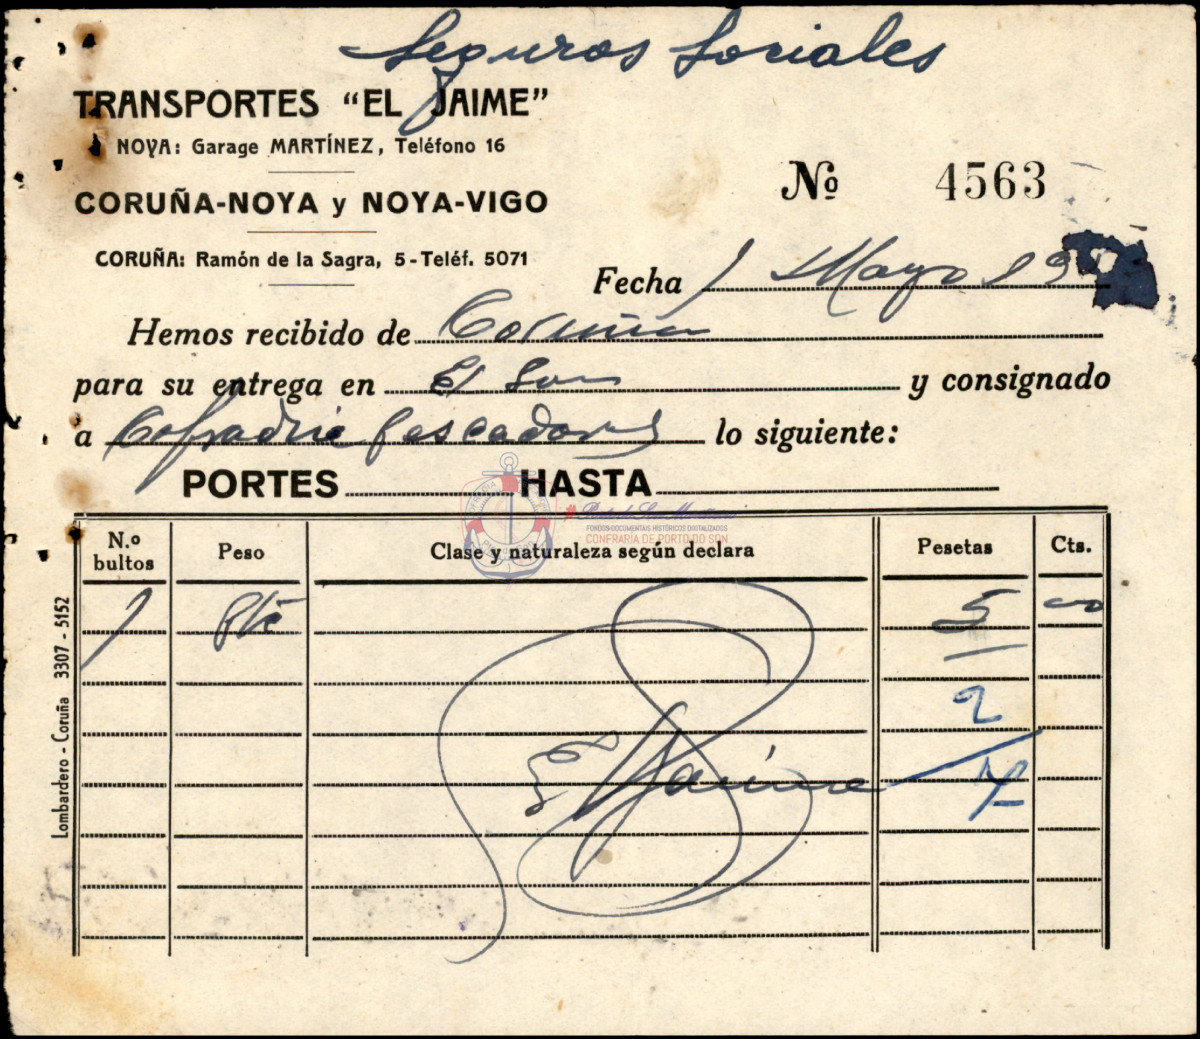 Seguros Sociales
TRANSPORTES "EL JAIME"
NOYA: Garage MARTÍNEZ, Teléfono 16
CORUÑA-NOYA y NOYA-VIGO
CORUÑA: Ramón de la Sagra, 5-Teléf. 5071
Nº 4563
Fecha 1 Mayo 19
Hemos recibido de Coruña
para su entrega en El Son y consignado
a Cofradia Pescadores lo siguiente:
PORTES HASTA
FONDOS DOCUMENTAIS HISTÓRICOS DIXITALIZADOS
CONFRARÍA DE PORTO DO SON
N.º bultos Peso Clase y naturaleza según declara Pesetas Cts.
1 Pte 5
2
El Jaime 7
Lombardero - Coruña 3307 - 5152